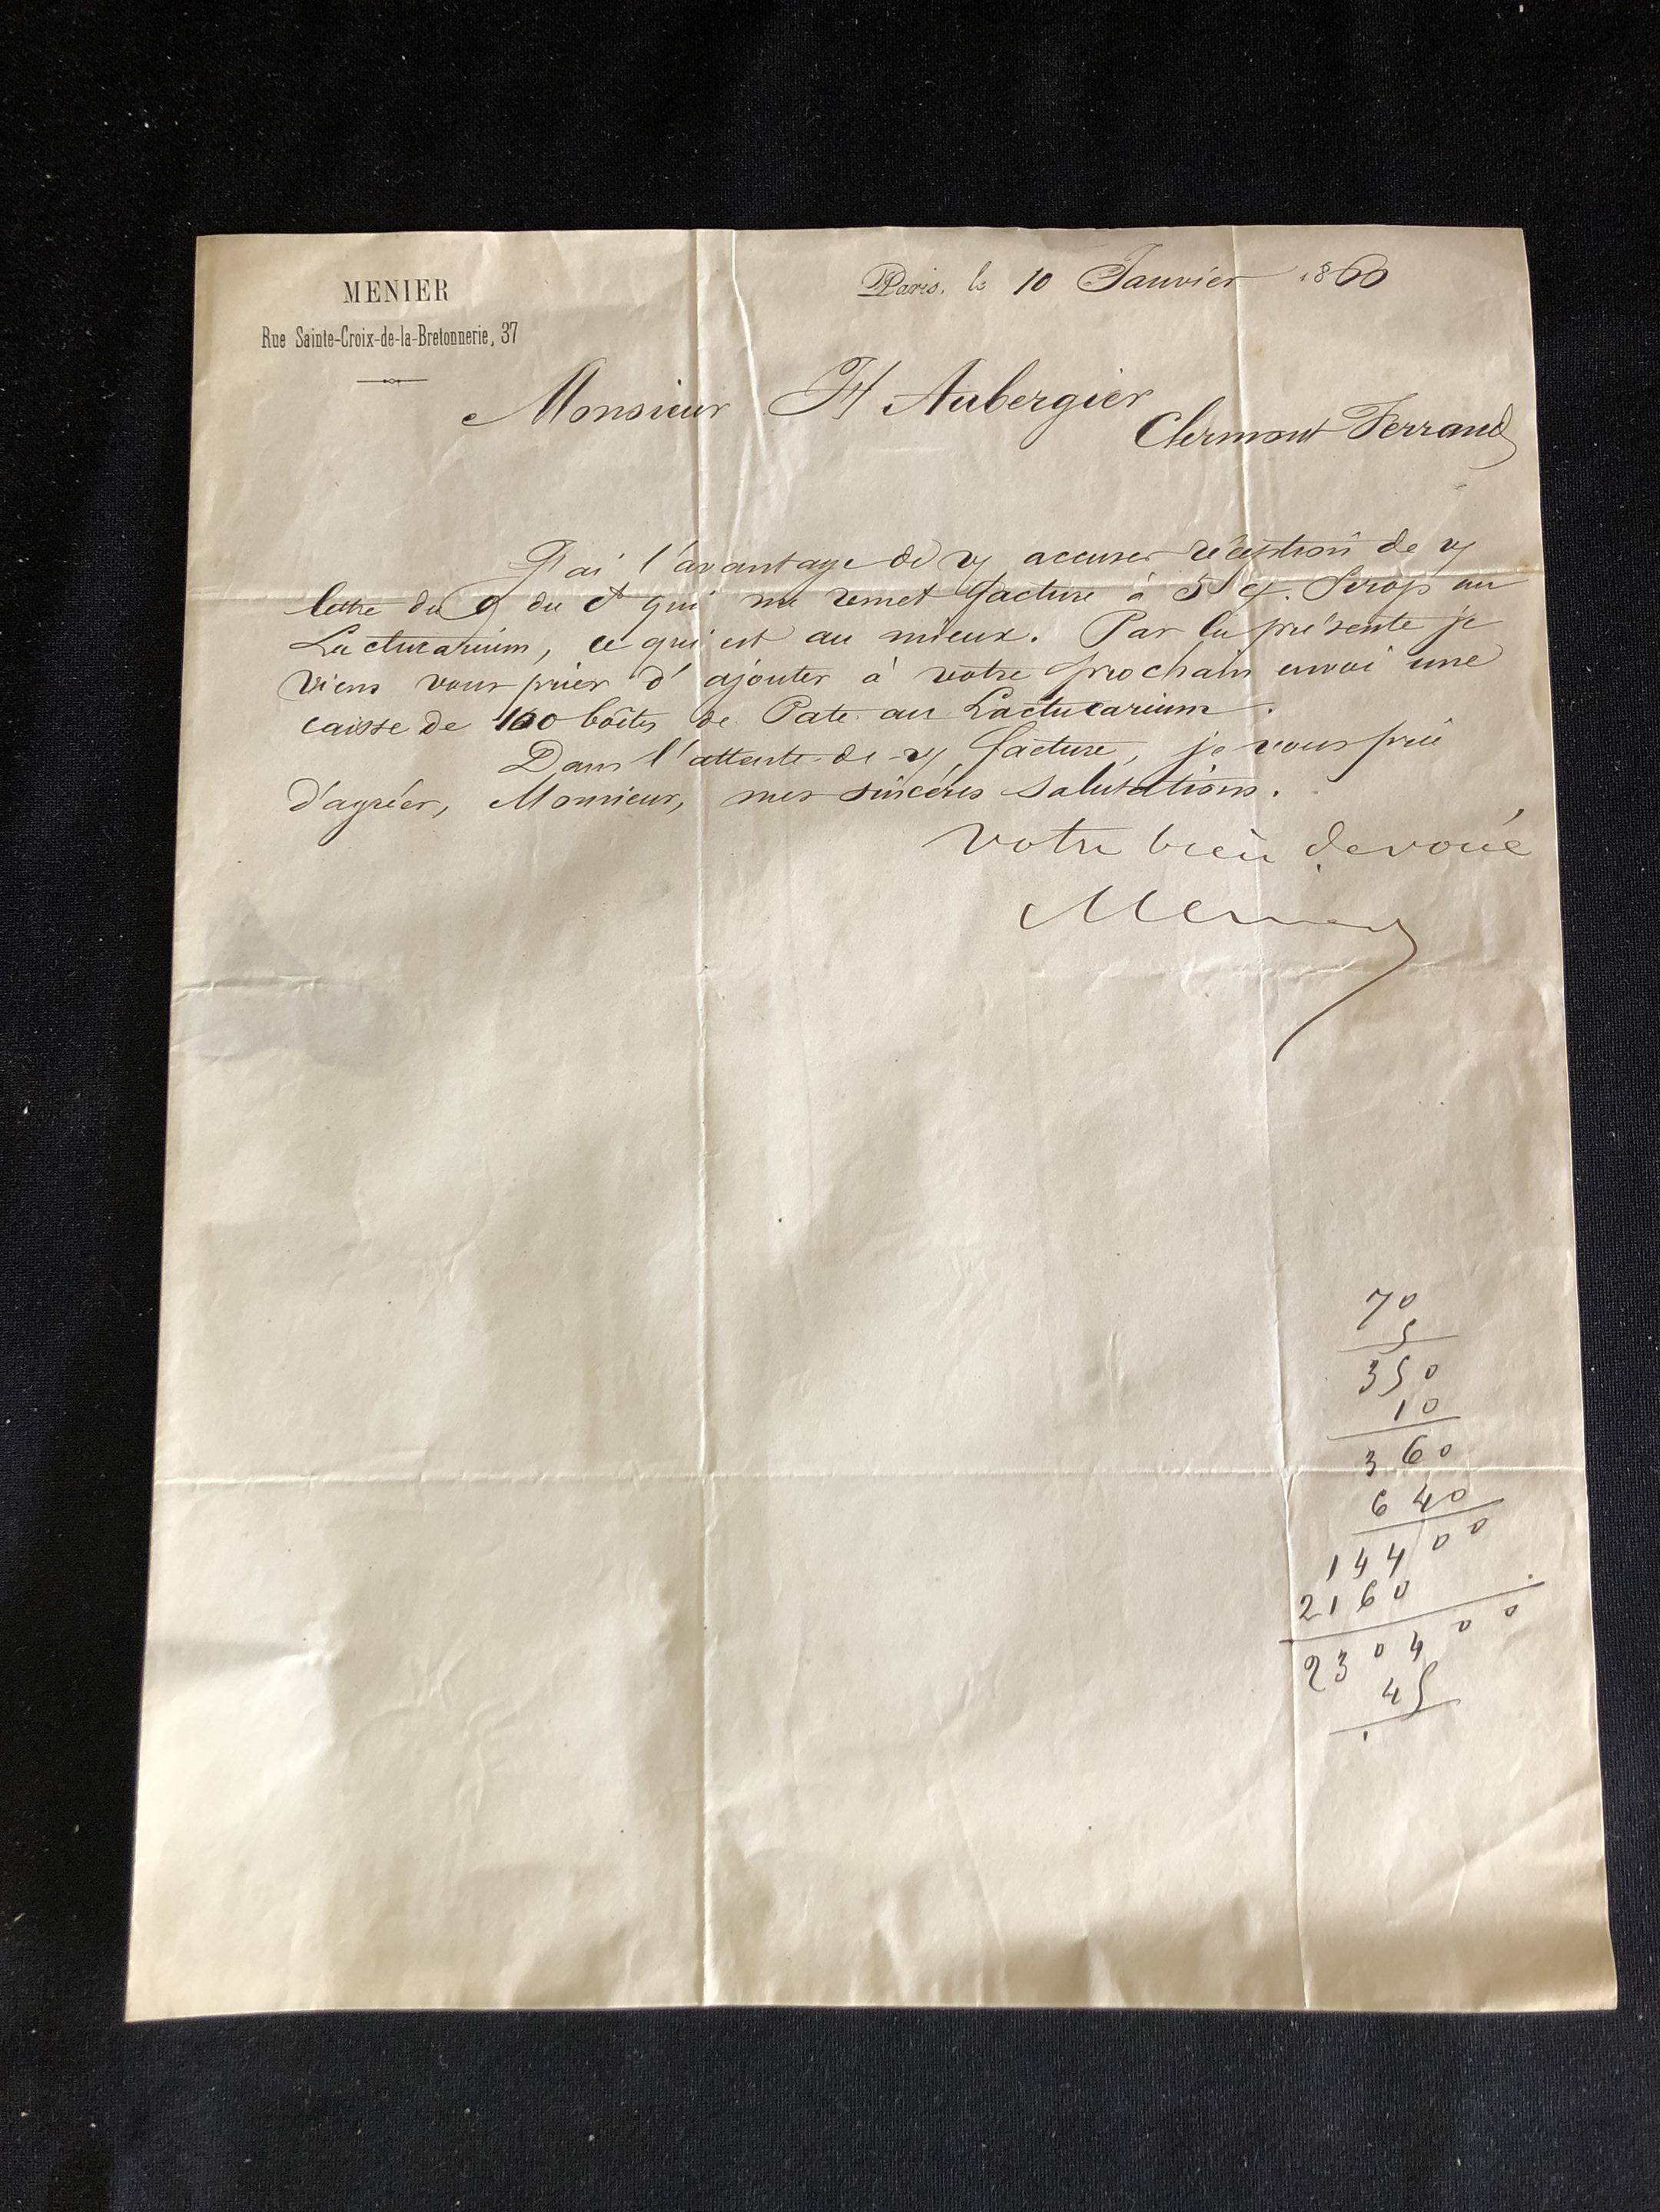 MENIER
Rue Sainte-Croix-de-la-Bretonnerie, 37
Paris, le 10 Janvier 1860
Monsieur H Aubergier
Clermont Ferrand
J'ai l'avantage de v/ accuser réception de v/
lettre du 9 du ct qui me remet facture à 5 c/. Sirop au
Lactucarium, ce qui est au mieux. Par la présente je
viens vous prier d'ajouter à votre prochain envoi une
caisse de 100 boîtes de Pate au Lactucarium.
Dans l'attente de v/ facture, je vous prie
d'agréer, Monsieur, mes sincères salutations.
Votre bien devoué
Menier
70
5
350
10
360
640
14400
2160
230400
45